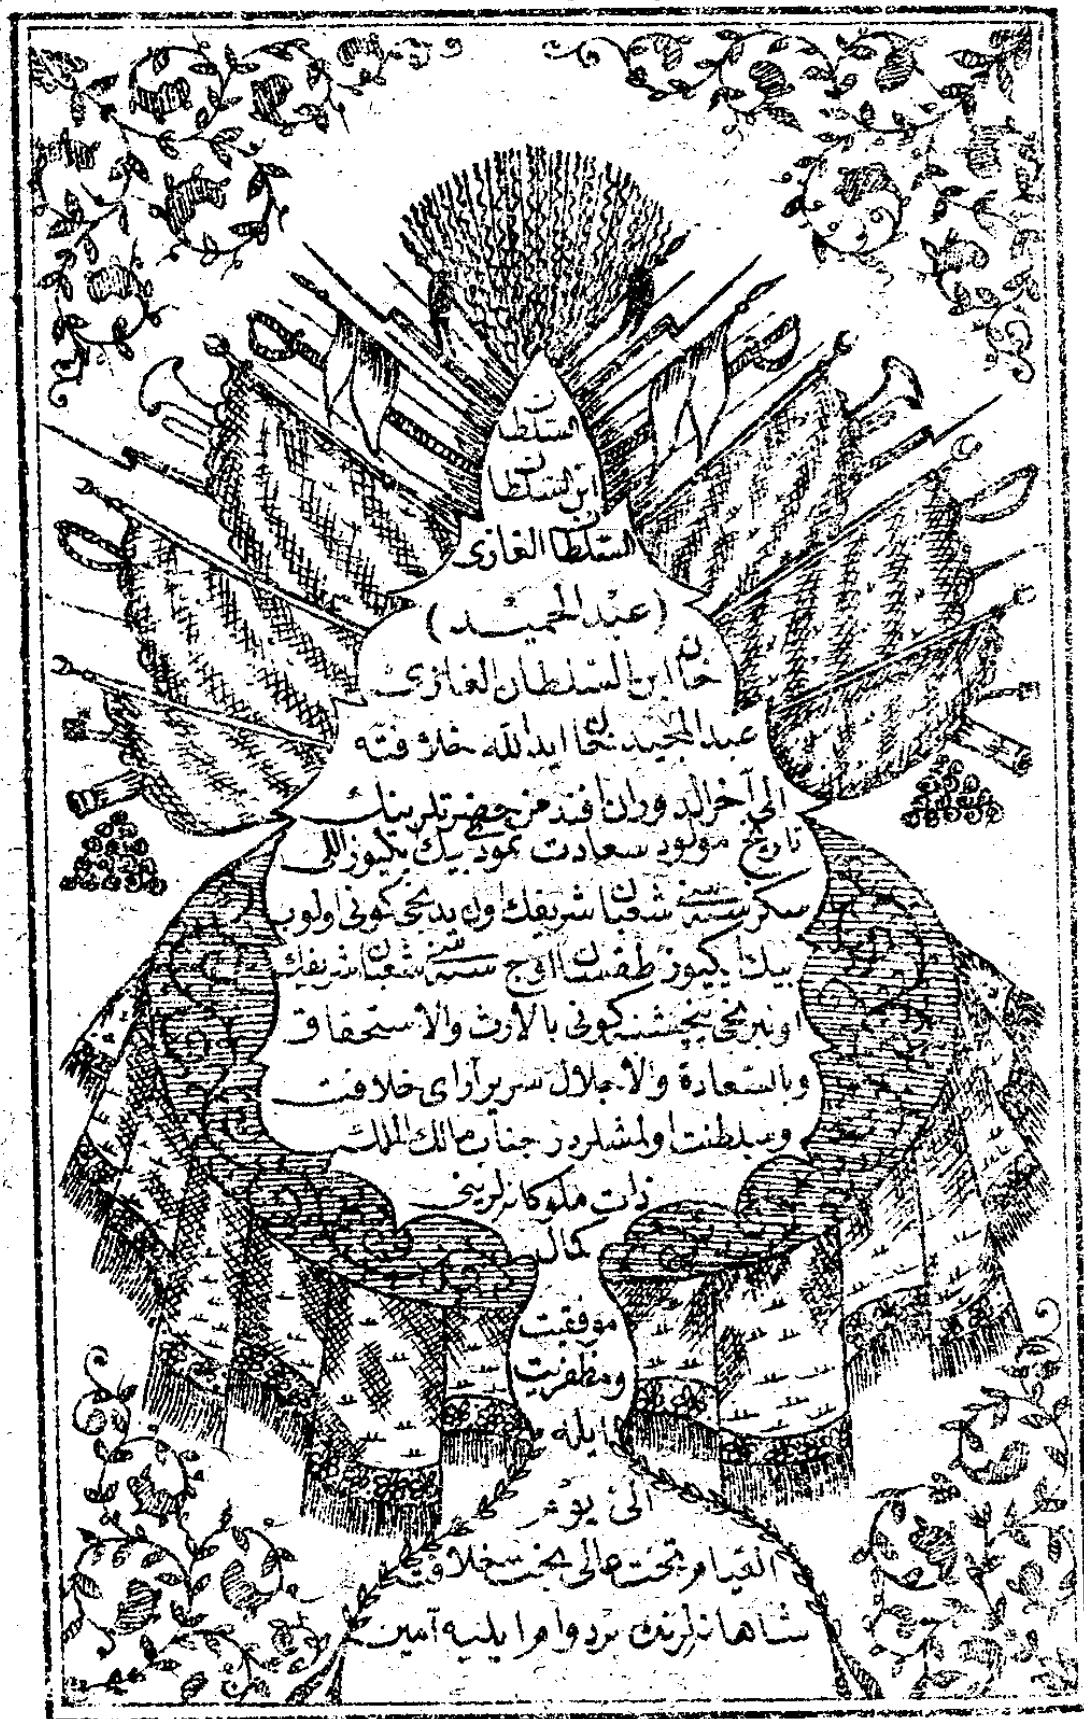 السلطان
ابن السلطان
السلطان الغازى
(عبد الحميد)
خان ابن السلطان الغازى
عبد المجيد خان ايد الله خلافته
الى آخر الدوران افندمز حضرتلرينك
تاريخ مولود سعادت نمودى بيك ايكيوز اللى
سكز سنه سى شعبان شريفك اون يدنجى كونى اولوب
بيك ايكيوز طقسان اوج سنه سى شعبان شريفك
اون برنجى پنجشنبه كونى بالارث والاستحقاق
وبالسعادة والاجلال سرير آراى خلافت
وسلطنت اولمشلردر جناب مالك الملك
ذات ملوكانه لرينى
كمال
موفقيت
ومظفريت
ايله
الى يوم
القيام تخت عالى بخت خلافت
شاهانه لرنده بردوام ايليه آمين